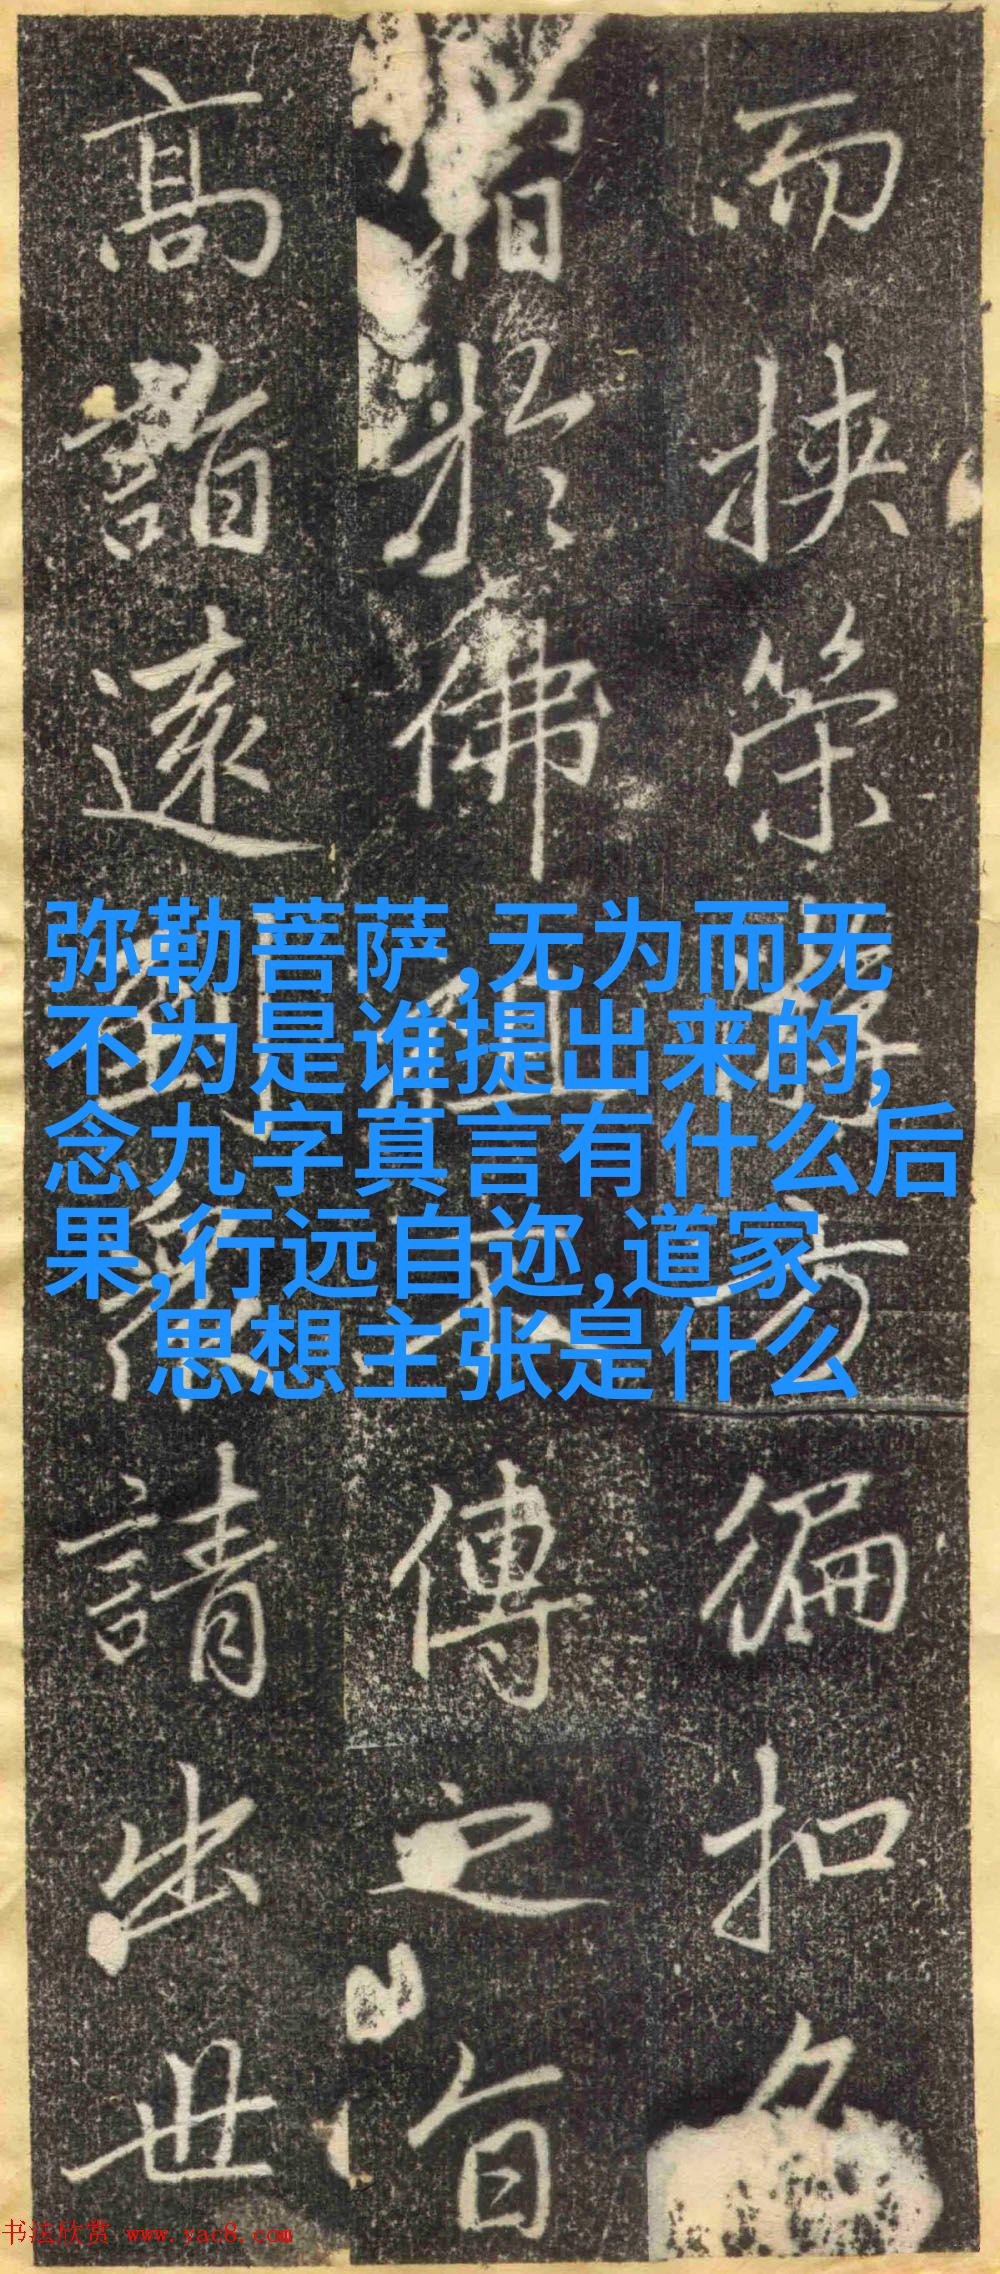 而挾策方徧扣
於佛祖不傳之旨
高遠請出世
弥勒菩萨,无为而无
不为是谁提出来的,
念九字真言有什么后
果,行远自迩,道家
思想主张是什么
书法欣赏 www.yac8.com